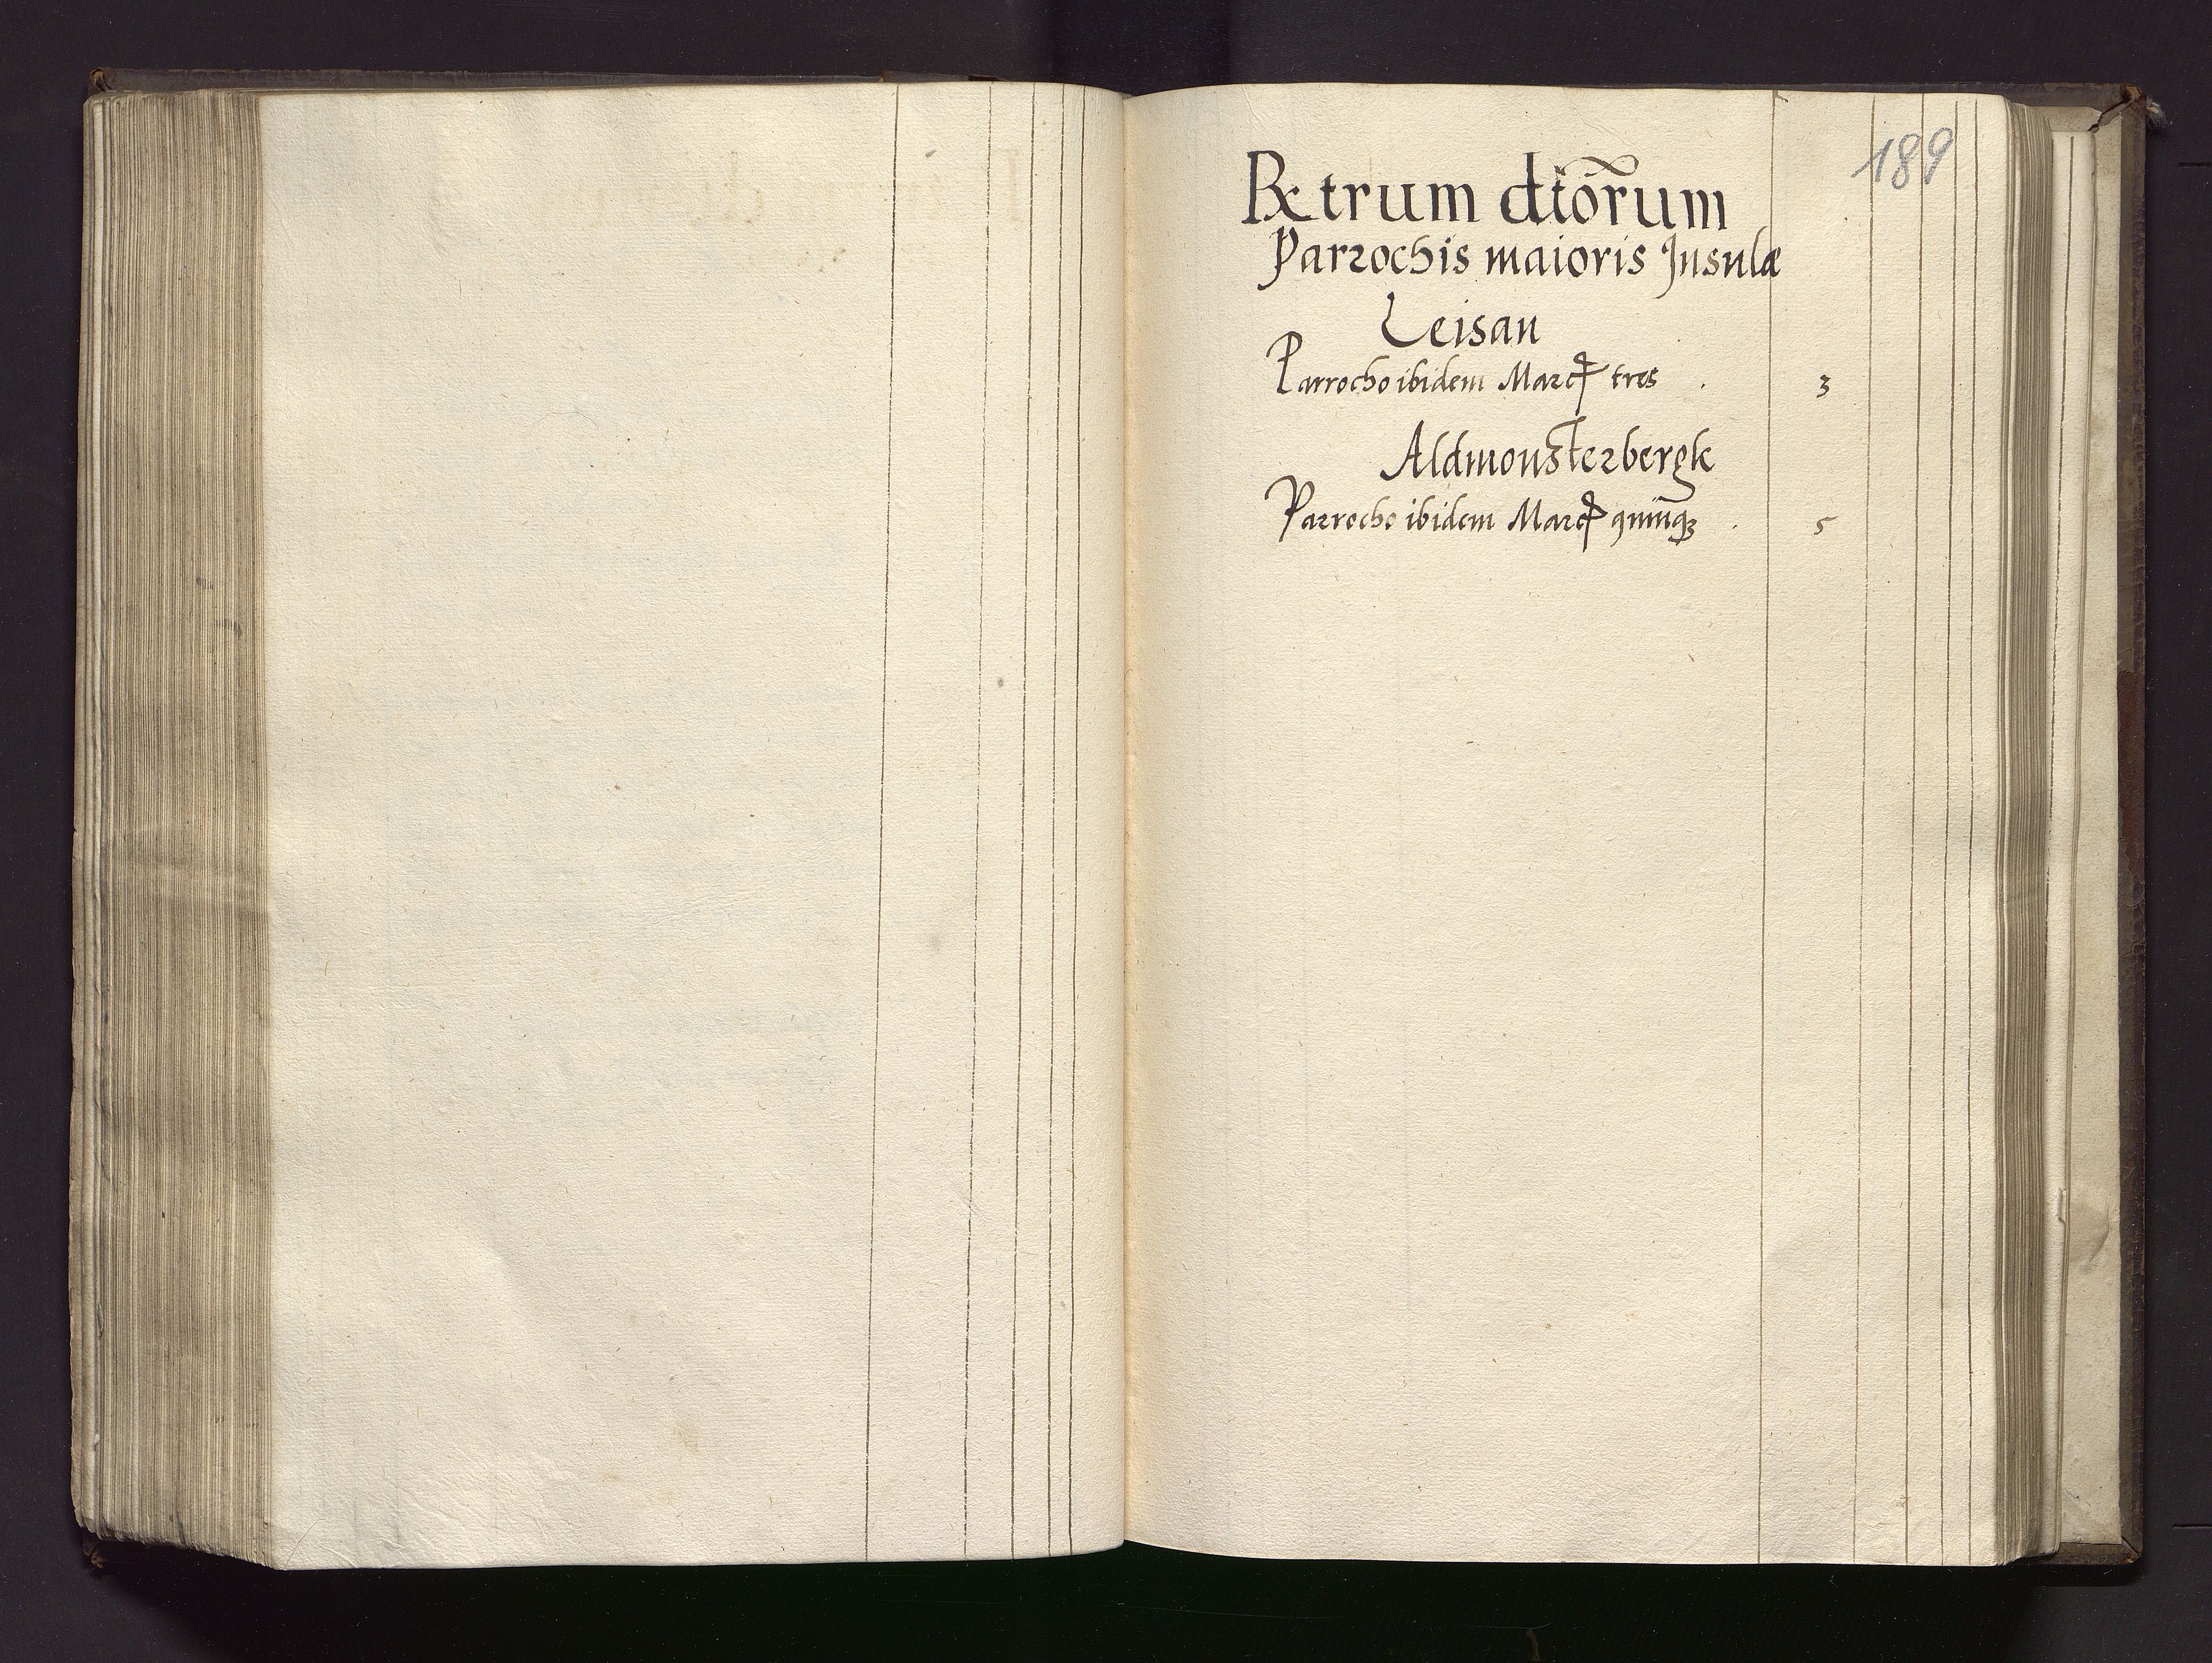 189
Rx trum dtõrum
Parrochis maioris Insulæ
Leisan
Parrocho ibidem Marcꝭ tres . 3
Aldmonsterbergk
Parrocho ibidem Marcꝭ quinqꝫ . 5